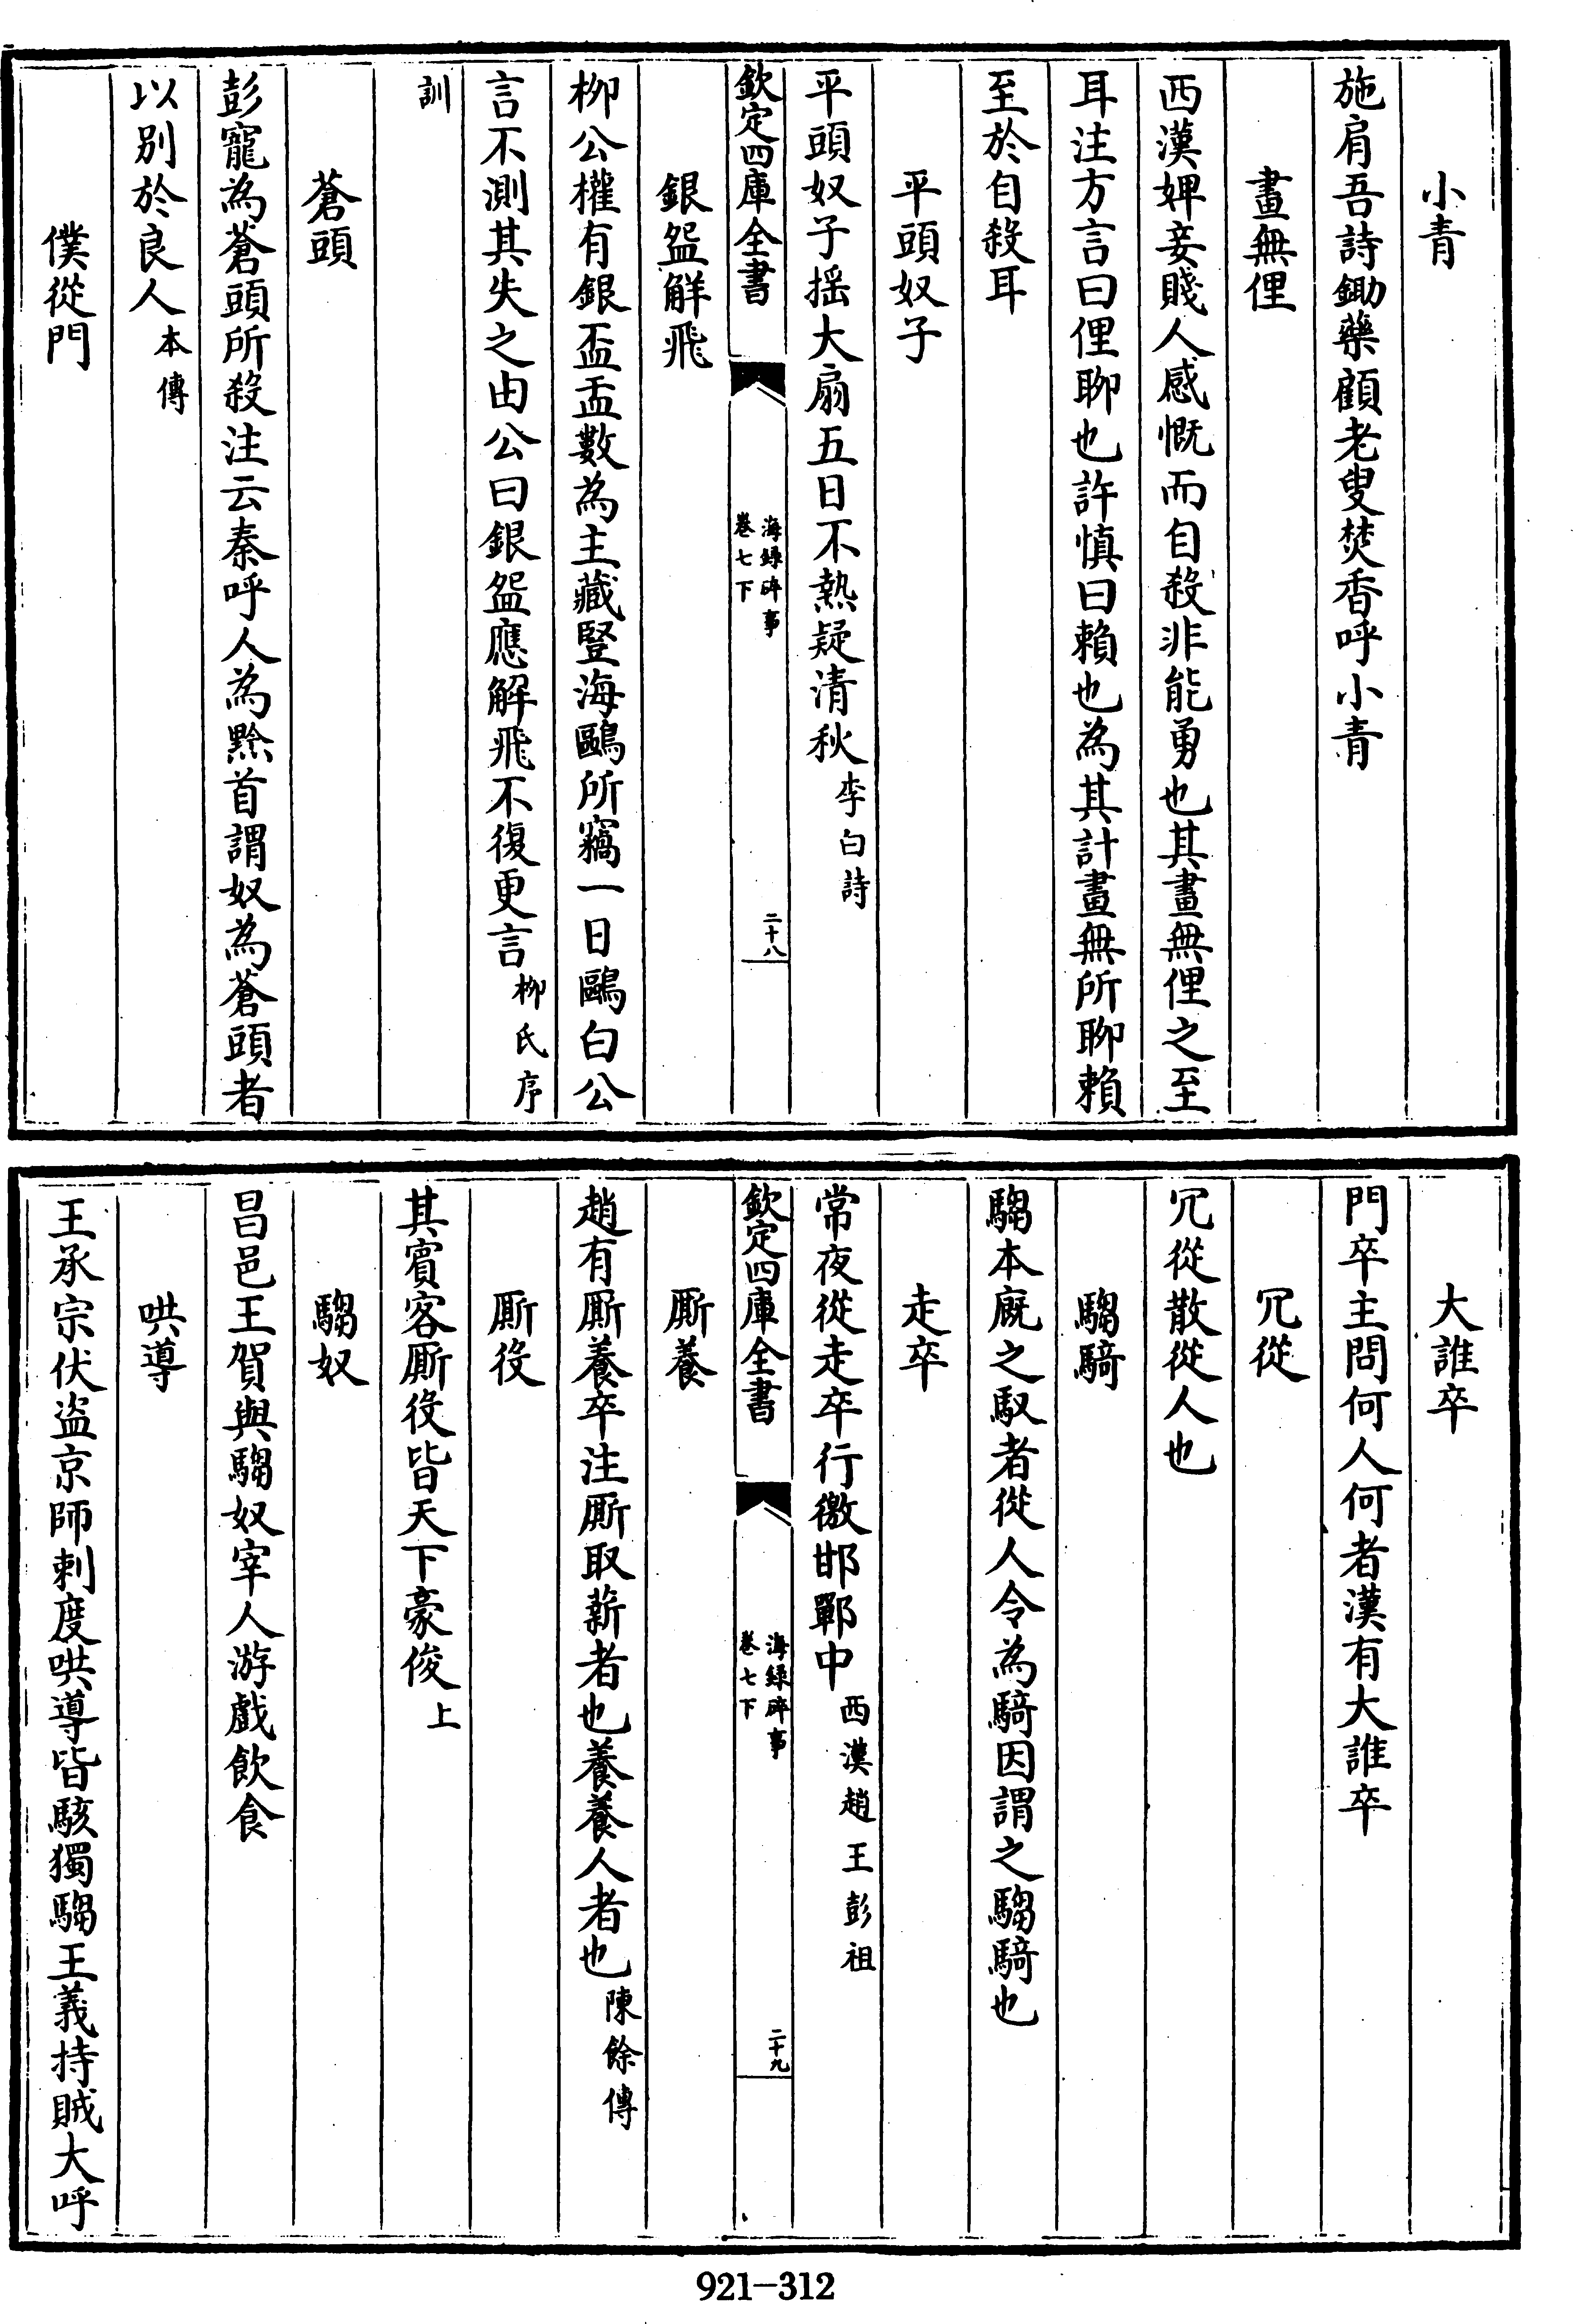 小青
施肩吾詩鋤藥顧老叟焚香呼小青
畫無俚
西漢婢妾賤人感慨而自殺非能勇也其畫無俚之至
耳注方言曰俚聊也許慎曰賴也為其計畫無所聊賴
至於自殺耳
平頭奴子
平頭奴子搖大扇五日不熱疑清秋李白詩
欽定四庫全書
海錄碎事
卷七下
二十八
銀盌觧飛
柳公權有銀盃盂數為主藏豎海鷗所竊一日鷗白公
言不測其失之由公曰銀盌應解飛不復更言柳氏序
訓
蒼頭
彭寵為蒼頭所殺注云秦呼人為黔首謂奴為蒼頭者
以別於良人本傳
僕從門
大誰卒
門卒主問何人何者漢有大誰卒
冗從
冗從散從人也
騶騎
騶本廐之馭者從人令為騎因謂之騶騎也
走卒
常夜從走卒行徼邯鄲中西漢趙王彭祖
欽定四庫全書
海錄碎事
卷七下
二十九
厮養
趙有厮養卒注厮取薪者也養養人者也陳餘傳
厮役
其賓客厮役皆天下豪俊上
騶奴
昌邑王賀與騶奴宰人游戲飲食
哄導
王承宗伏盜京師刺度哄導皆駭獨騶王義持賊大呼
921-312